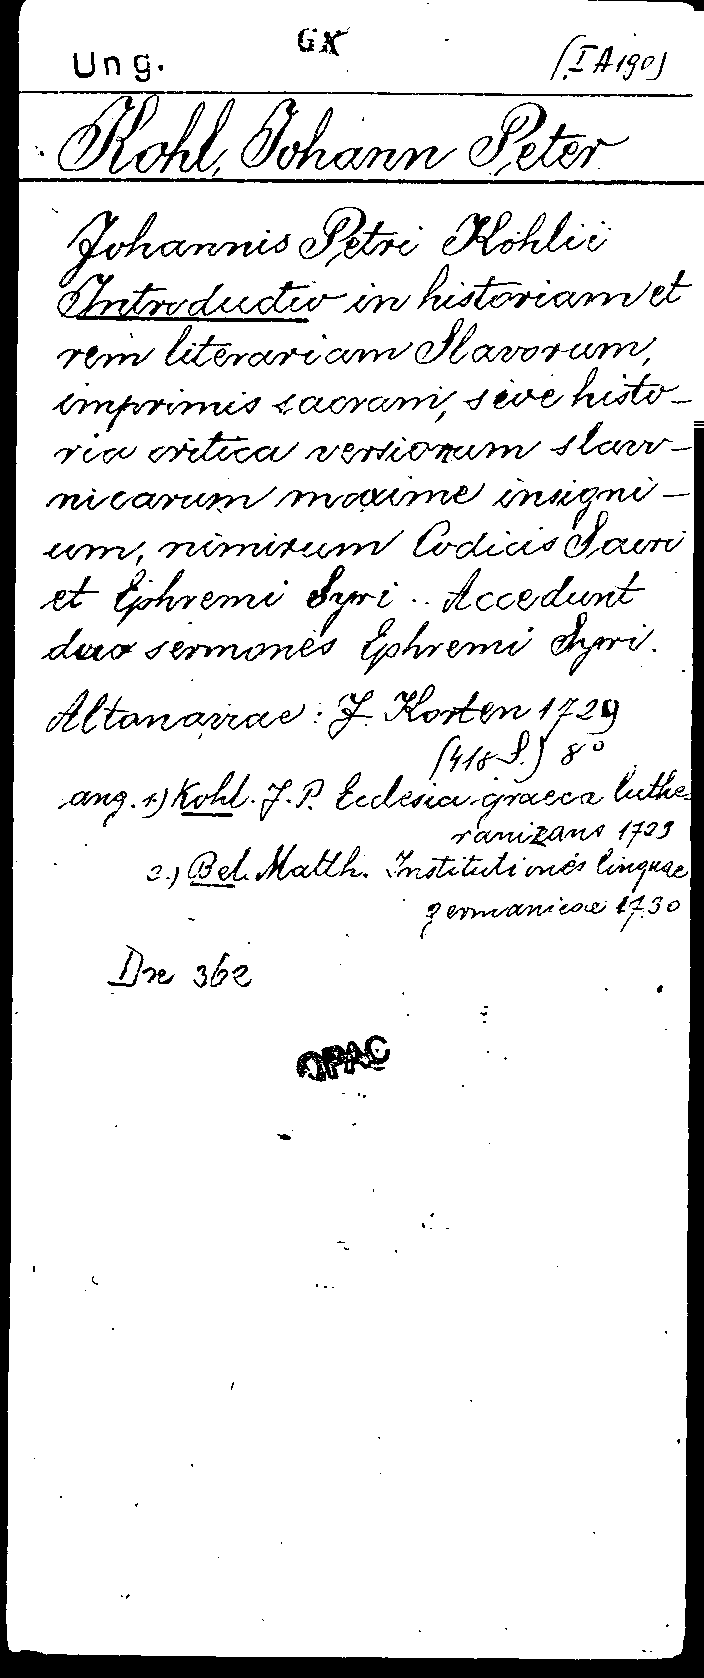 Ung. GX (I A 190)
Kohl, Johann Peter
Johannis Petri Kohlii
Introductio in historiam et
rem literariam Slavorum,
imprimis sacram, sive histo-
ria critica versionum slavo-
nicarum maxime insigni-
um, nimirum Codicis Sacri
et Ephremi Syri .. Accedunt
duo sermones Ephremi Syri.
Altonaviae : J. Korten 1729
(418 S.) 8°
ang. 1.) Kohl. J. P. Ecclesia graeca luthe-
ranizans 1723
2.) Bel. Matth. Institutiones linguae
germanicae 1730
Dre 362
OPAC